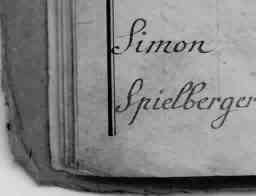 Simon
Spielberger